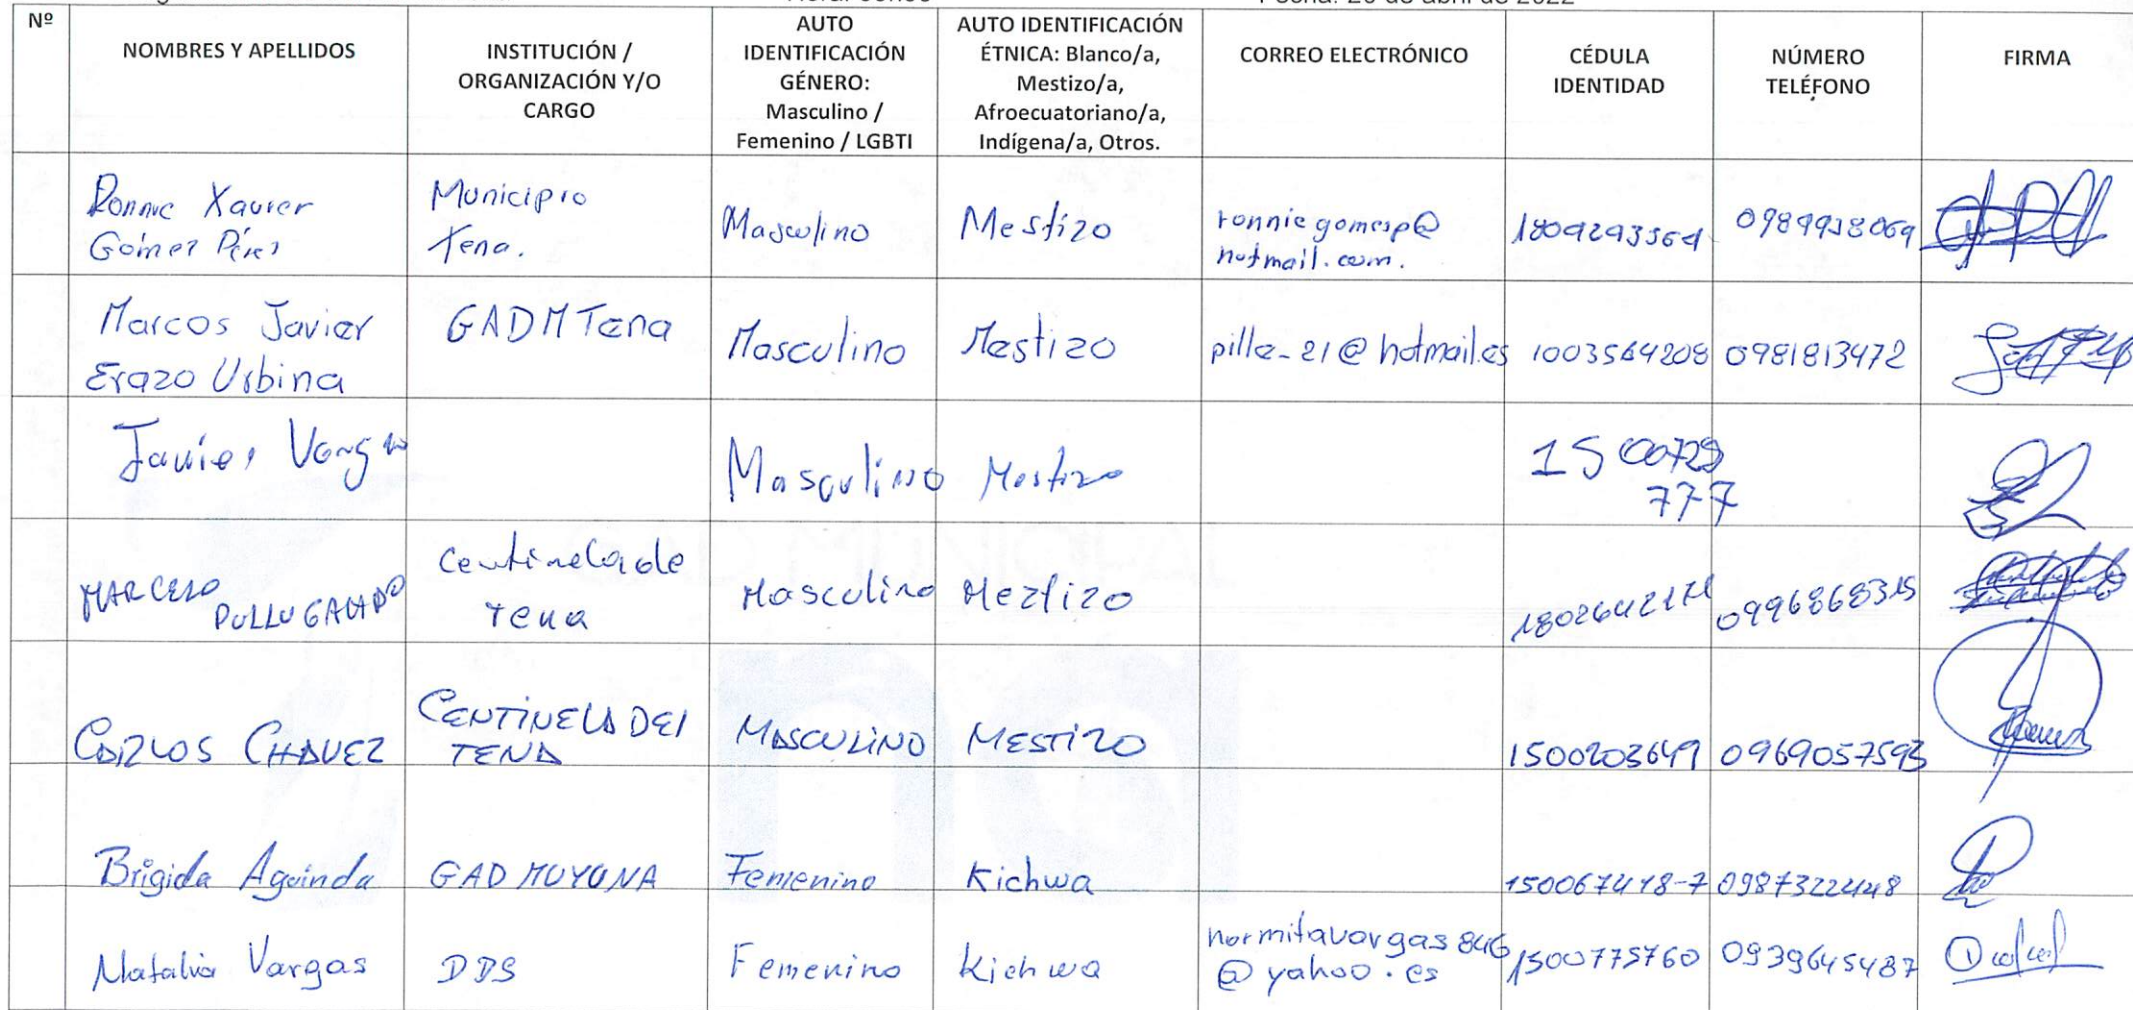 Fecha: 20 de abril de 2022
Nº
NOMBRES Y APELLIDOS
INSTITUCIÓN /
ORGANIZACIÓN Y/O
CARGO
AUTO
IDENTIFICACIÓN
GÉNERO:
Masculino /
Femenino / LGBTI
AUTO IDENTIFICACIÓN
ÉTNICA: Blanco/a,
Mestizo/a,
Afroecuatoriano/a,
Indígena/a, Otros.
CORREO ELECTRÓNICO
CÉDULA
IDENTIDAD
NÚMERO
TELÉFONO
FIRMA
Ronnie Xavier
Gómez Pérez
Municipio
Tena.
Masculino
Mestizo
ronniegomesp@
hotmail.com.
Marcos Javier
Erazo Urbina
GADM Tena
Masculino
Mestizo
1003564208
0981813472
Javier
Masculino
Mestizo
1500729
777
MARCELO
Centinela de
Tena
Masculino
Meztizo
0996868315
CARLOS CHAVEZ
CENTINELA DEL
TENA
MASCULINO
MESTIZO
0969057593
Brigida Aguinda
GAD MUYUNA
Femenino
Kichwa
Natalia Vargas
DDS
Femenino
Kichwa
normitavargas846
@yahoo.es
1500775760
0939645487